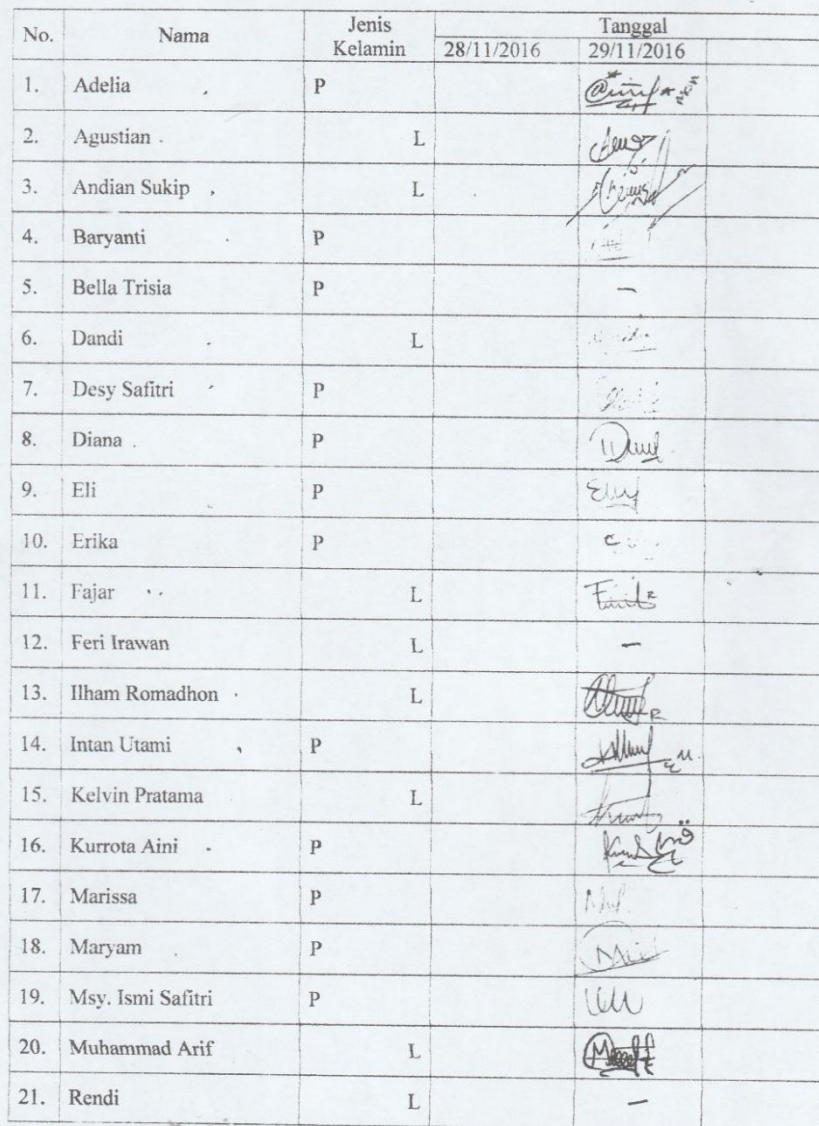 No. Nama Jenis Kelamin Tanggal
28/11/2016 29/11/2016
1. Adelia P
2. Agustian L
3. Andian Sukip L
4. Baryanti P
5. Bella Trisia P –
6. Dandi L
7. Desy Safitri P
8. Diana P
9. Eli P
10. Erika P
11. Fajar L
12. Feri Irawan L –
13. Ilham Romadhon L
14. Intan Utami P
15. Kelvin Pratama L
16. Kurrota Aini P
17. Marissa P
18. Maryam P
19. Msy. Ismi Safitri P
20. Muhammad Arif L
21. Rendi L –